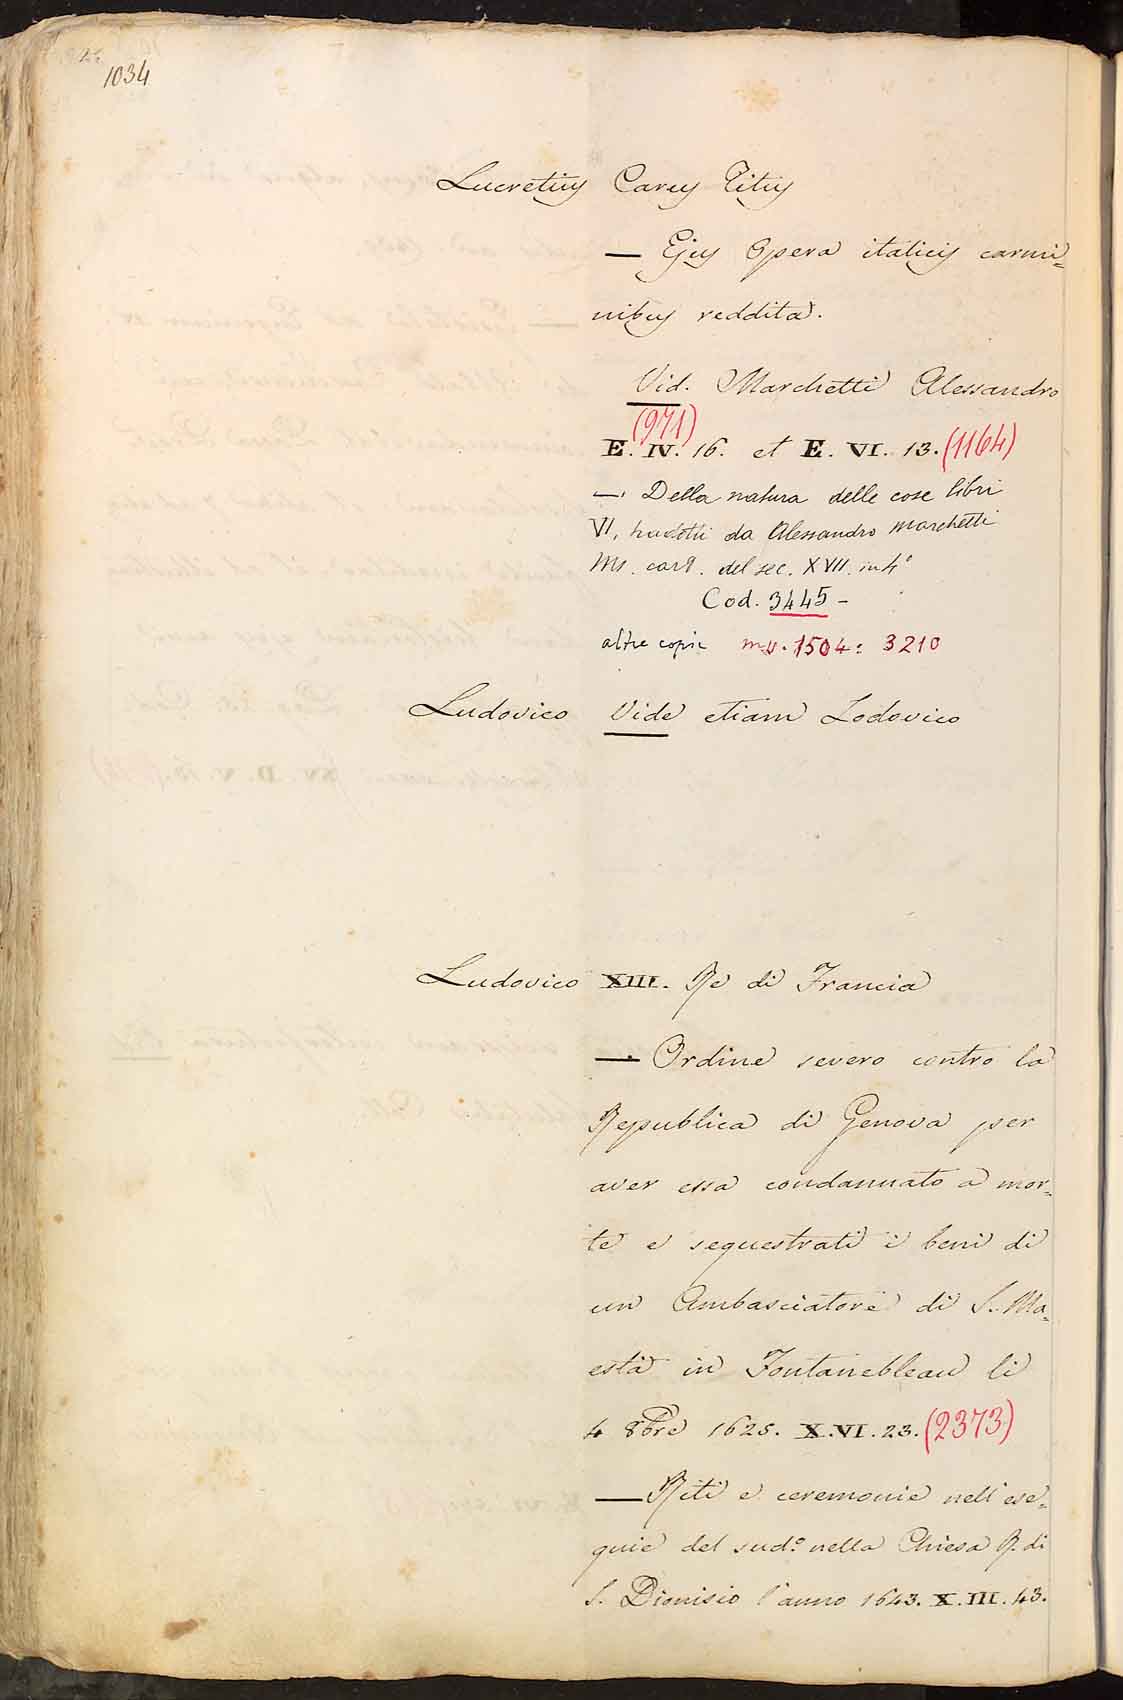 1034
Lucretius Carus Titus
— Ejus Opera italicis carmi=
nibus reddita.
Vid. Marchetti Alessandro
(971)
E. IV. 16. et E. VI. 13. (1164)
—. Della natura delle cose libri
VI, tradotti da Alessandro Marchetti
Ms. cart. del sec. XVII. in 4°
Cod. 3445 -
altre copie ms. 1504: 3210
Ludovico Vide etiam Lodovico
Ludovico XIII. Re di Francia
— Ordine severo contro la
Republica di Genova per
aver essa condannato a mor=
te e sequestrati i beni di
un Ambasciatore di S. Ma=
està in Fontanebleau li
4 8bre 1625. X. VI. 23. (2373)
— Riti e ceremonie nell'ese=
quie del sud.° nella Chiesa R. di
S. Dionisio l'anno 1643. X. III. 43.